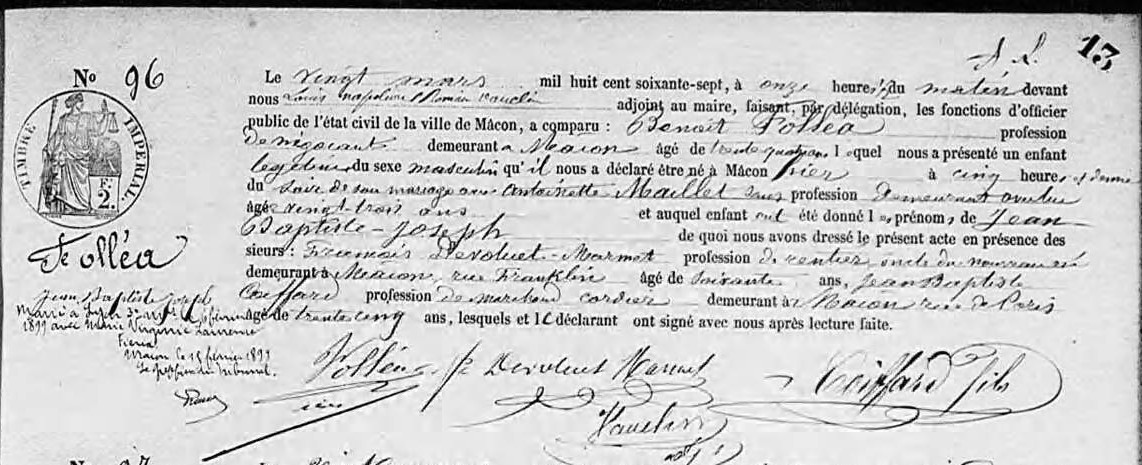 13
No 96
TIMBRE IMPERIAL
Fr. 2.
Folléa
Jean Baptiste Joseph
Marié à Lyon 3e
1899 avec Marie Virginie Laurence
Macon le 15 février 1899
Le vingt mars mil huit cent soixante-sept, à onze heures du matin devant
nous Louis Napoléon Romain Vauclin adjoint au maire, faisant, par délégation, les fonctions d'officier
public de l'état civil de la ville de Mâcon, a comparu : Benoît Folléa profession
De négociant demeurant à Macon âgé de trente quatre ans lequel nous a présenté un enfant
légitime du sexe masculin qu'il nous a déclaré être né à Mâcon hier à cinq heures et demie
du soir de son mariage avec Antoinette Maillet sans profession demeurant avec lui
âgée vingt trois ans et auquel enfant ont été donné les prénoms de Jean
Baptiste-Joseph de quoi nous avons dressé le présent acte en présence des
sieurs : François Devoluet-Marmet profession de rentier oncle du nouveau né
demeurant à Macon, rue Franklin âgé de soixante ans, Jean Baptiste
Coiffard profession de marchand cordier demeurant à Macon rue de Paris
âgé de trente cinq ans, lesquels et le déclarant ont signé avec nous après lecture faite.
Folléa
Coiffard fils
Vauclin